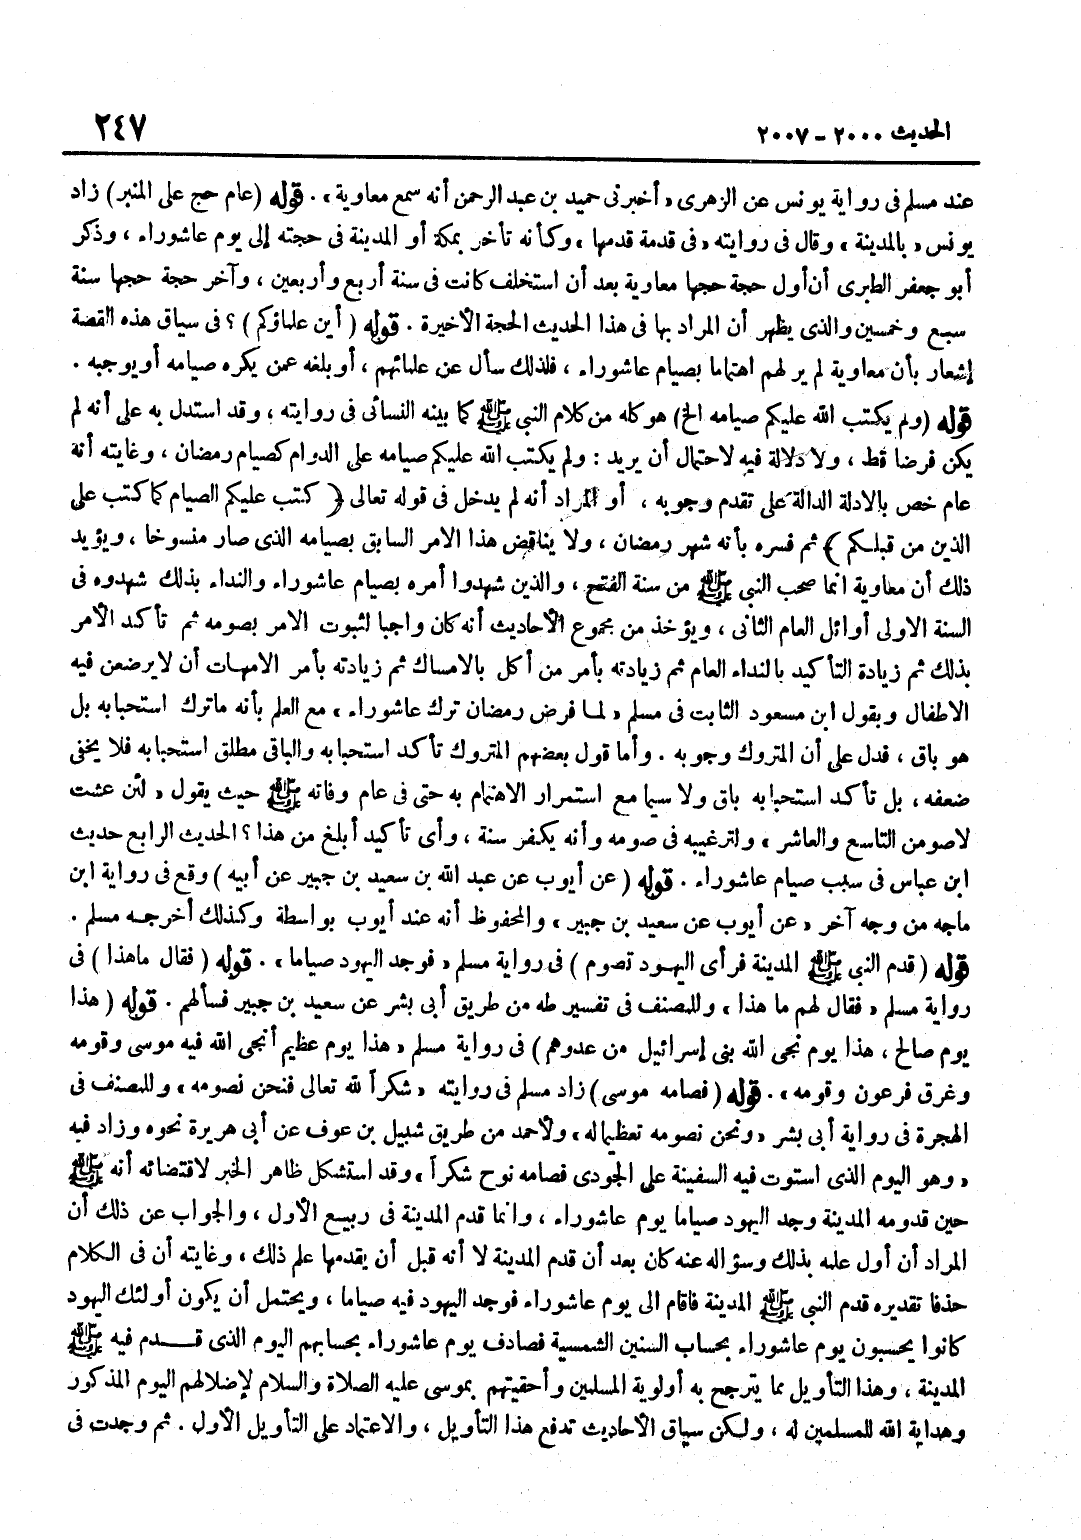 الحديث ٢٠٠٠ - ٢٠٠٧
٢٤٧
عند مسلم فى رواية يونس عن الزهرى « أخبرنى حميد بن عبد الرحمن أنه سمع معاوية » . قوله (عام حج على المنبر) زاد
يونس « بالمدينة » وقال فى روايته « فى قدمة قدمها » وكأنه تأخر بمكة أو المدينة فى حجته إلى يوم عاشوراء ، وذكر
أبو جعفر الطبرى أن أول حجة حجها معاوية بعد أن استخلف كانت فى سنة أربع وأربعين ، وآخر حجة حجها سنة
سبع وخمسين والذى يظهر أن المراد بها فى هذا الحديث الحجة الأخيرة . قوله ( أين علماؤكم ) ؟ فى سياق هذه القصة
إشعار بأن معاوية لم ير لهم اهتماما بصيام عاشوراء ، فلذلك سأل عن علمائهم ، أو بلغه عمن يكره صيامه أو يوجبه .
قوله (ولم يكتب الله عليكم صيامه الخ) هو كله من كلام النبي ﷺ كما بينه النسائى فى روايته ، وقد استدل به على أنه لم
يكن فرضا قط ، ولا دلالة فيه لاحتمال أن يريد : ولم يكتب الله عليكم صيامه على الدوام كصيام رمضان ، وغايته أنة
عام خص بالادلة الدالة على تقدم وجوبه ، أو المراد أنه لم يدخل فى قوله تعالى ﴿ كتب عليكم الصيام كما كتب على
الذين من قبلكم ﴾ ثم فسره بأنه شهر رمضان ، ولا يناقض هذا الامر السابق بصيامه الذى صار منسوخا ، ويؤيد
ذلك أن معاوية انما صحب النبي ﷺ من سنة الفتح ، والذين شهدوا أمره بصيام عاشوراء والنداء بذلك شهدوه فى
السنة الاولى أوائل العام الثانى ، ويؤخذ من مجموع الأحاديث أنه كان واجبا لثبوت الامر بصومه ثم تأكد الأمر
بذلك ثم زيادة التأكيد بالنداء العام ثم زيادته بأمر من أكل بالامساك ثم زيادته بأمر الامهات أن لا يرضعن فيه
الاطفال وبقول ابن مسعود الثابت فى مسلم « لما فرض رمضان ترك عاشوراء » مع العلم بأنه ماترك استحبابه بل
هو باق ، فدل على أن المتروك وجوبه . وأما قول بعضهم المتروك تأكد استحبابه والباقى مطلق استحبابه فلا يخفى
ضعفه ، بل تأكد استحبابه باق ولا سيما مع استمرار الاهتمام به حتى فى عام وفاته ﷺ حيث يقول « لئن عشت
لاصومن التاسع والعاشر » ولترغيبه فى صومه وأنه يكفر سنة ، وأى تأكيد أبلغ من هذا ؟ الحديث الرابع حديث
ابن عباس فى سبب صيام عاشوراء . قوله ( عن أيوب عن عبد الله بن سعيد بن جبير عن أبيه ) وقع فى رواية ابن
ماجه من وجه آخر « عن أيوب عن سعيد بن جبير » والمحفوظ أنه عند أيوب بواسطة وكذلك أخرجه مسلم .
قوله ( قدم النبي ﷺ المدينة فرأى اليهود تصوم ) فى رواية مسلم « فوجد اليهود صياما » . قوله ( فقال ماهذا ) فى
رواية مسلم « فقال لهم ما هذا » وللمصنف فى تفسير طه من طريق أبى بشر عن سعيد بن جبير فسألهم . قوله ( هذا
يوم صالح ، هذا يوم نجى الله بنى إسرائيل من عدوهم ) فى رواية مسلم « هذا يوم عظيم أنجى الله فيه موسى وقومه
وغرق فرعون وقومه » . قوله ( فصامه موسى ) زاد مسلم فى روايته « شكراً لله تعالى فنحن نصومه » وللمصنف فى
الهجرة فى رواية أبى بشر « ونحن نصومه تعظيما له » ولأحمد من طريق شبيل بن عوف عن أبى هريرة نحوه وزاد فيه
« وهو اليوم الذى استوت فيه السفينة على الجودى فصامه نوح شكراً » وقد استشكل ظاهر الخبر لاقتضائه أنه ﷺ
حين قدومه المدينة وجد اليهود صياما يوم عاشوراء ، وانما قدم المدينة فى ربيع الأول ، والجواب عن ذلك أن
المراد أن أول علمه بذلك وسؤاله عنه كان بعد أن قدم المدينة لا أنه قبل أن يقدمها علم ذلك ، وغايته أن فى الكلام
حذفا تقديره قدم النبي ﷺ المدينة فاقام الى يوم عاشوراء فوجد اليهود فيه صياما ، ويحتمل أن يكون أولئك اليهود
كانوا يحسبون يوم عاشوراء بحساب السنين الشمسية فصادف يوم عاشوراء بحسابهم اليوم الذى قدم فيه ﷺ
المدينة ، وهذا التأويل مما يترجح به أولوية المسلمين وأحقيتهم بموسى عليه الصلاة والسلام لإضلالهم اليوم المذكور
وهداية الله للمسلمين له ، ولكن سياق الأحاديث تدفع هذا التأويل ، والاعتماد على التأويل الأول . ثم وجدت فى